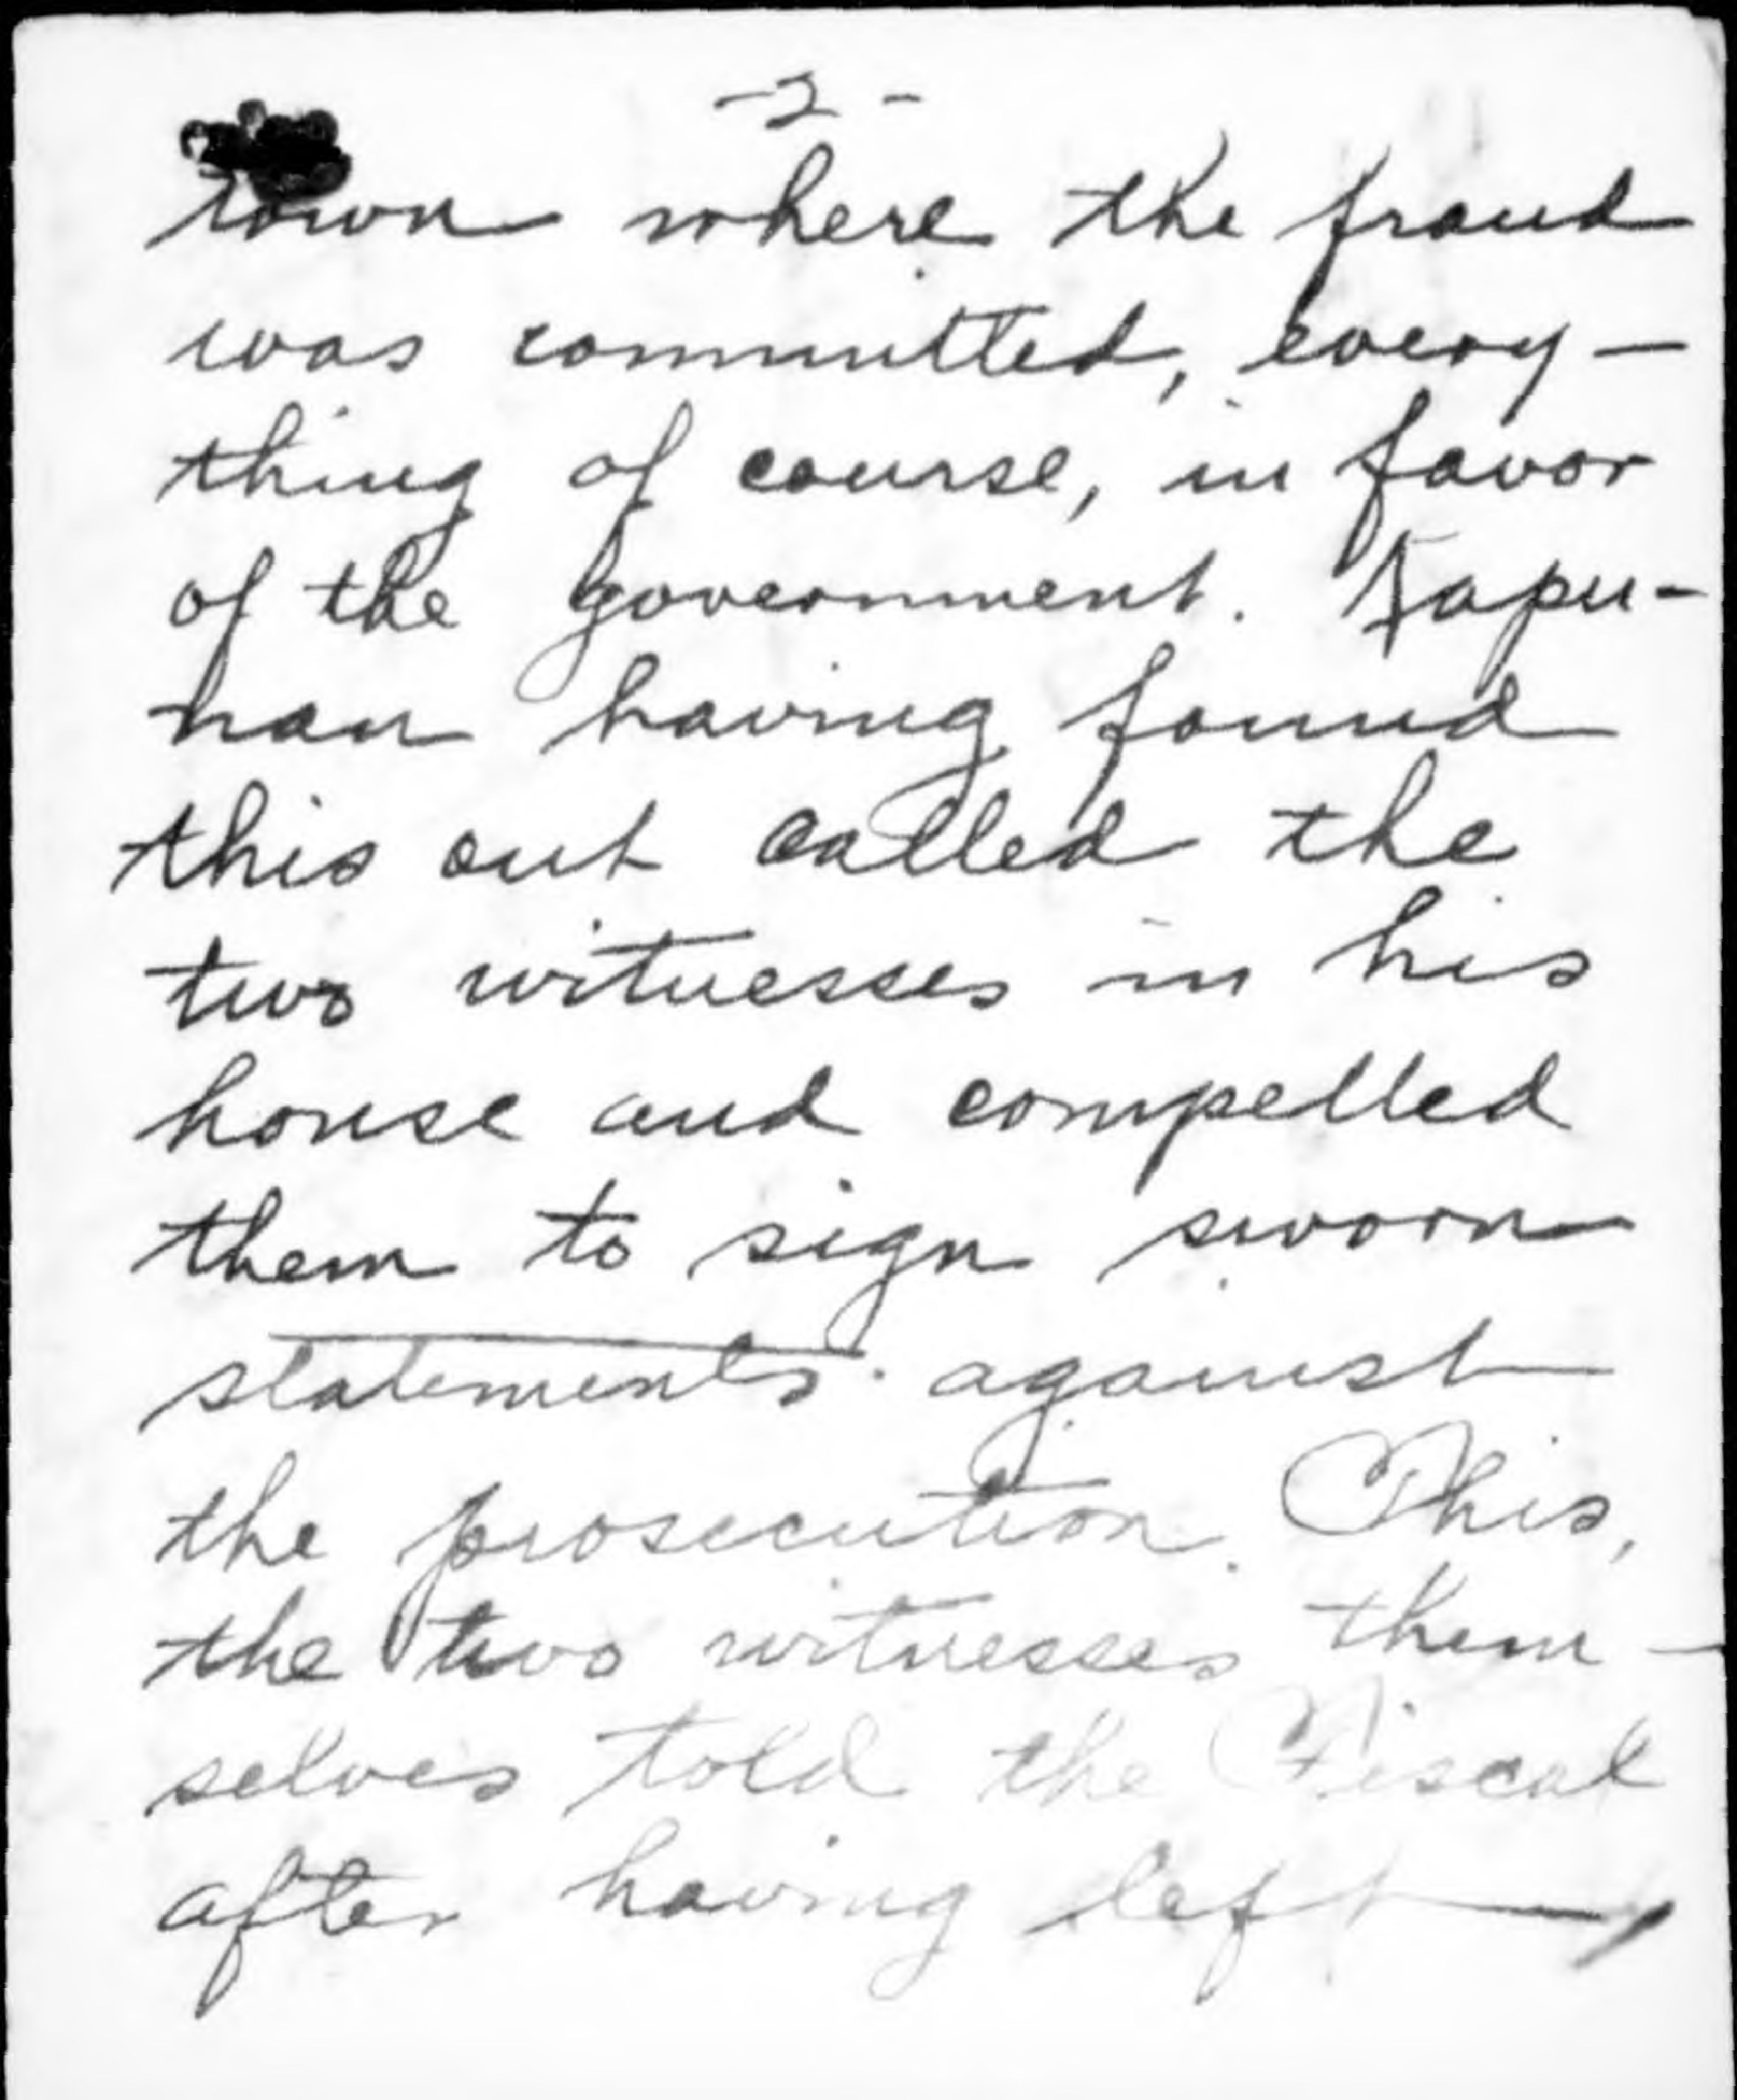 -2-
town where the fraud
was committed, every-
thing of course, in favor
of the Government. Kapu-
nan having found
this out called the
two witnesses in his
house and compelled
them to sign sworn
statements against
the prosecution. This,
the two witnesses them-
selves told the Fiscal
after having left